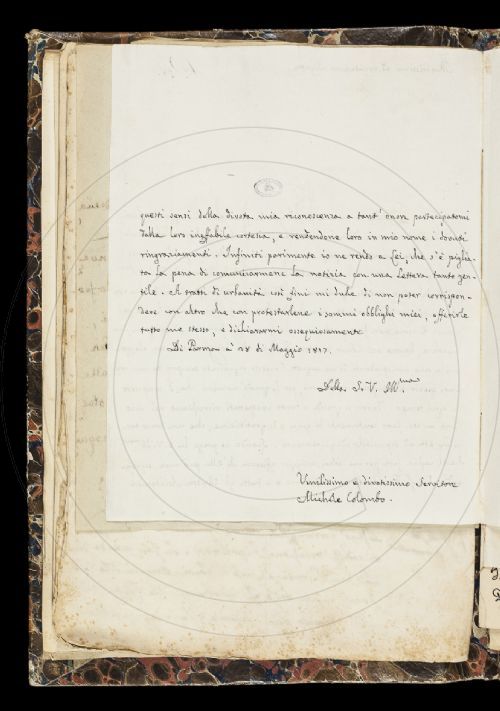 questi sensi della divota mia riconoscenza a tant' onor partecipatomi
dalla loro ineffabile cortesia, e rendendone loro in mio nome i dovuti
ringraziamenti. Infiniti parimente io ne rendo a Lei, che s'è piglia-
ta la pena di comunicarmene la notizia con una lettera tanto gen-
tile. A tratti di urbanità così fini mi duole di non poter corrispon-
dere con altro che con protestarlene i sommi obblighi miei, offerirle
tutto me stesso, e dichiararmi ossequiosamente
Di Parma a' 28 di Maggio 1817.
Della S. V. Ill.ma
Umilissimo e divotissimo Servitore
Michele Colombo.